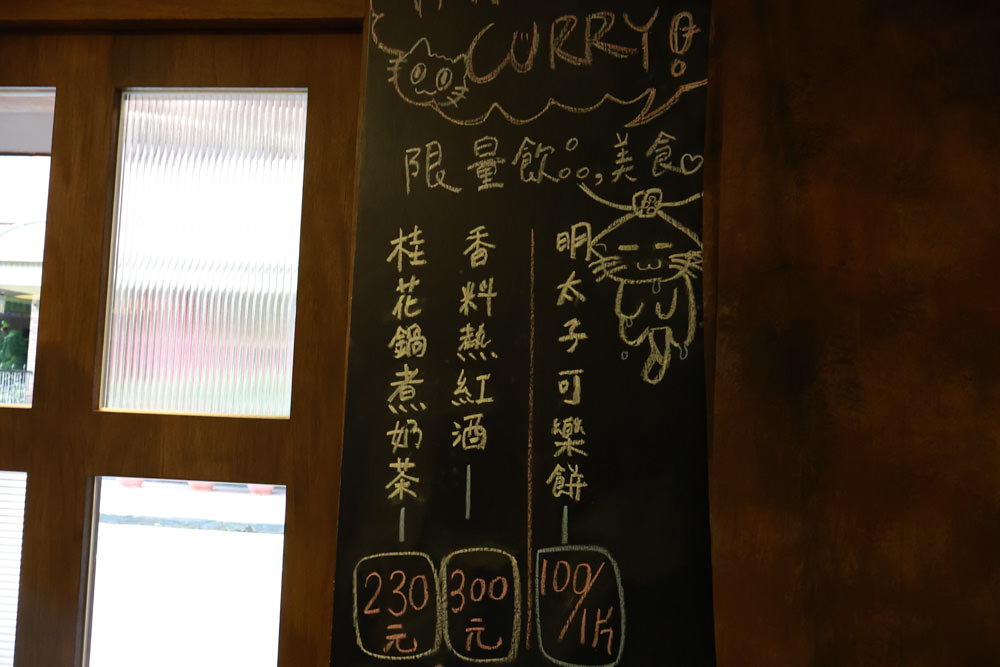 CURRY!
限量飲。。。,美食♡
明太子可樂餅
100/1片
香料熱紅酒
300元
桂花鍋煮奶茶
230元